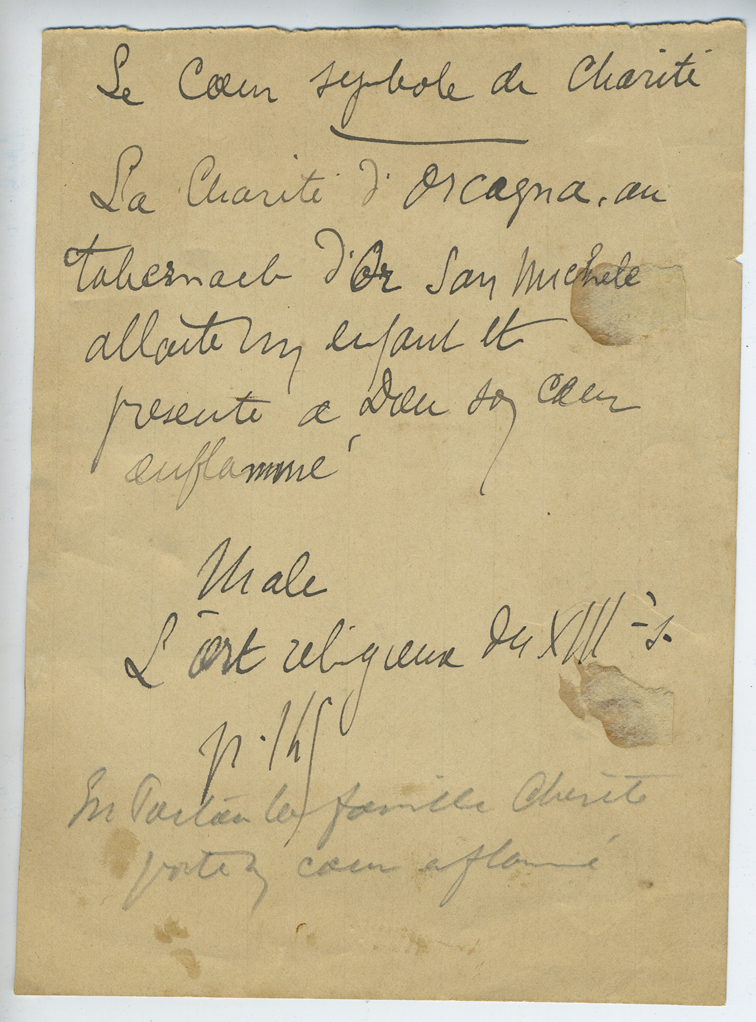 Le Cœur symbole de Charité
La Charité d'Orcagna, au
tabernacle d'Or San Michele
allaite un enfant et
presente a Dieu son cœur
enflammé
Male
L'art religieux du XIII e s.
p. 145
En Poitou la famille Cherité
porte un cœur enflammé